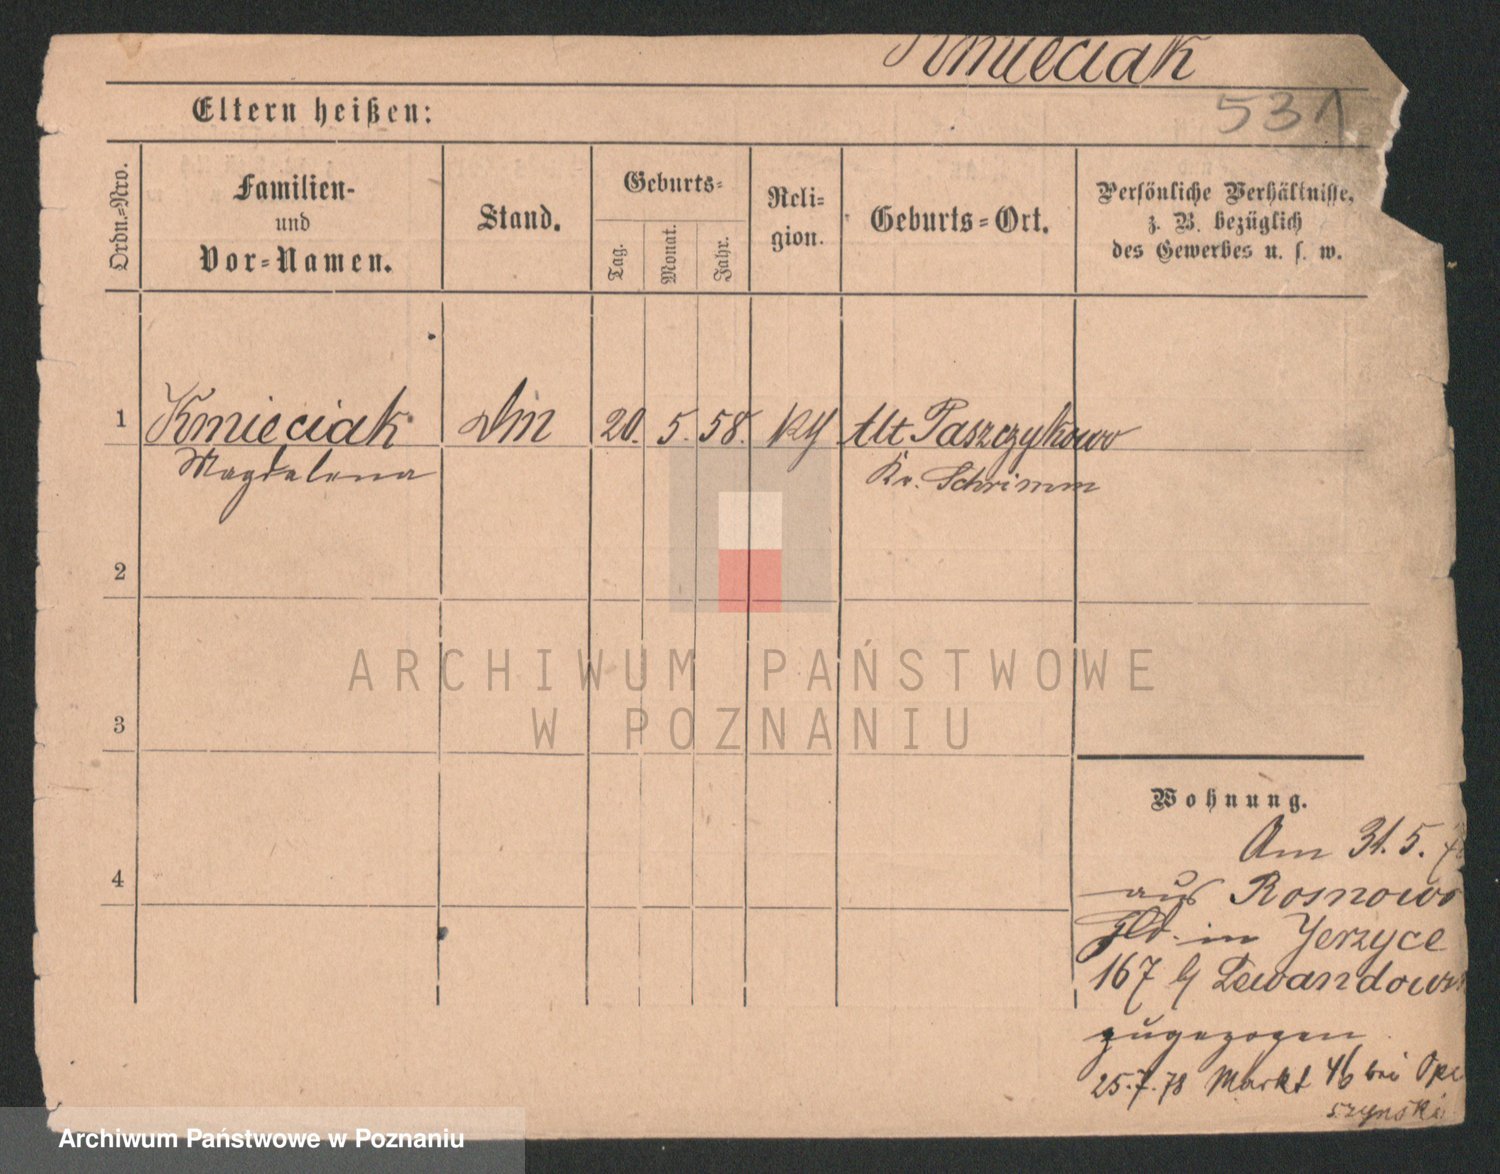 Kmieciak
531
Eltern heißen:
Ordn.=Nro.
Familien-
und
Vor=Namen.
Stand.
Geburts=
Tag.
Monat.
Jahr.
Reli=
gion.
Geburts=Ort.
Persönliche Verhältnisse,
z. B. bezüglich
des Gewerbes u. s. w.
1 Kmieciak 20. 5. 58. Alt Paszczykowo
Magdalena Kr. Schrimm
2
3
4
ARCHIWUM PAŃSTWOWE
W POZNANIU
Wohnung.
Am 31. 5.
aus Rosnowo
in Jerzyce
167 Lewandows
zugezogen
25.7.78 Markt 46 bei Ope
szynski
Archiwum Państwowe w Poznaniu